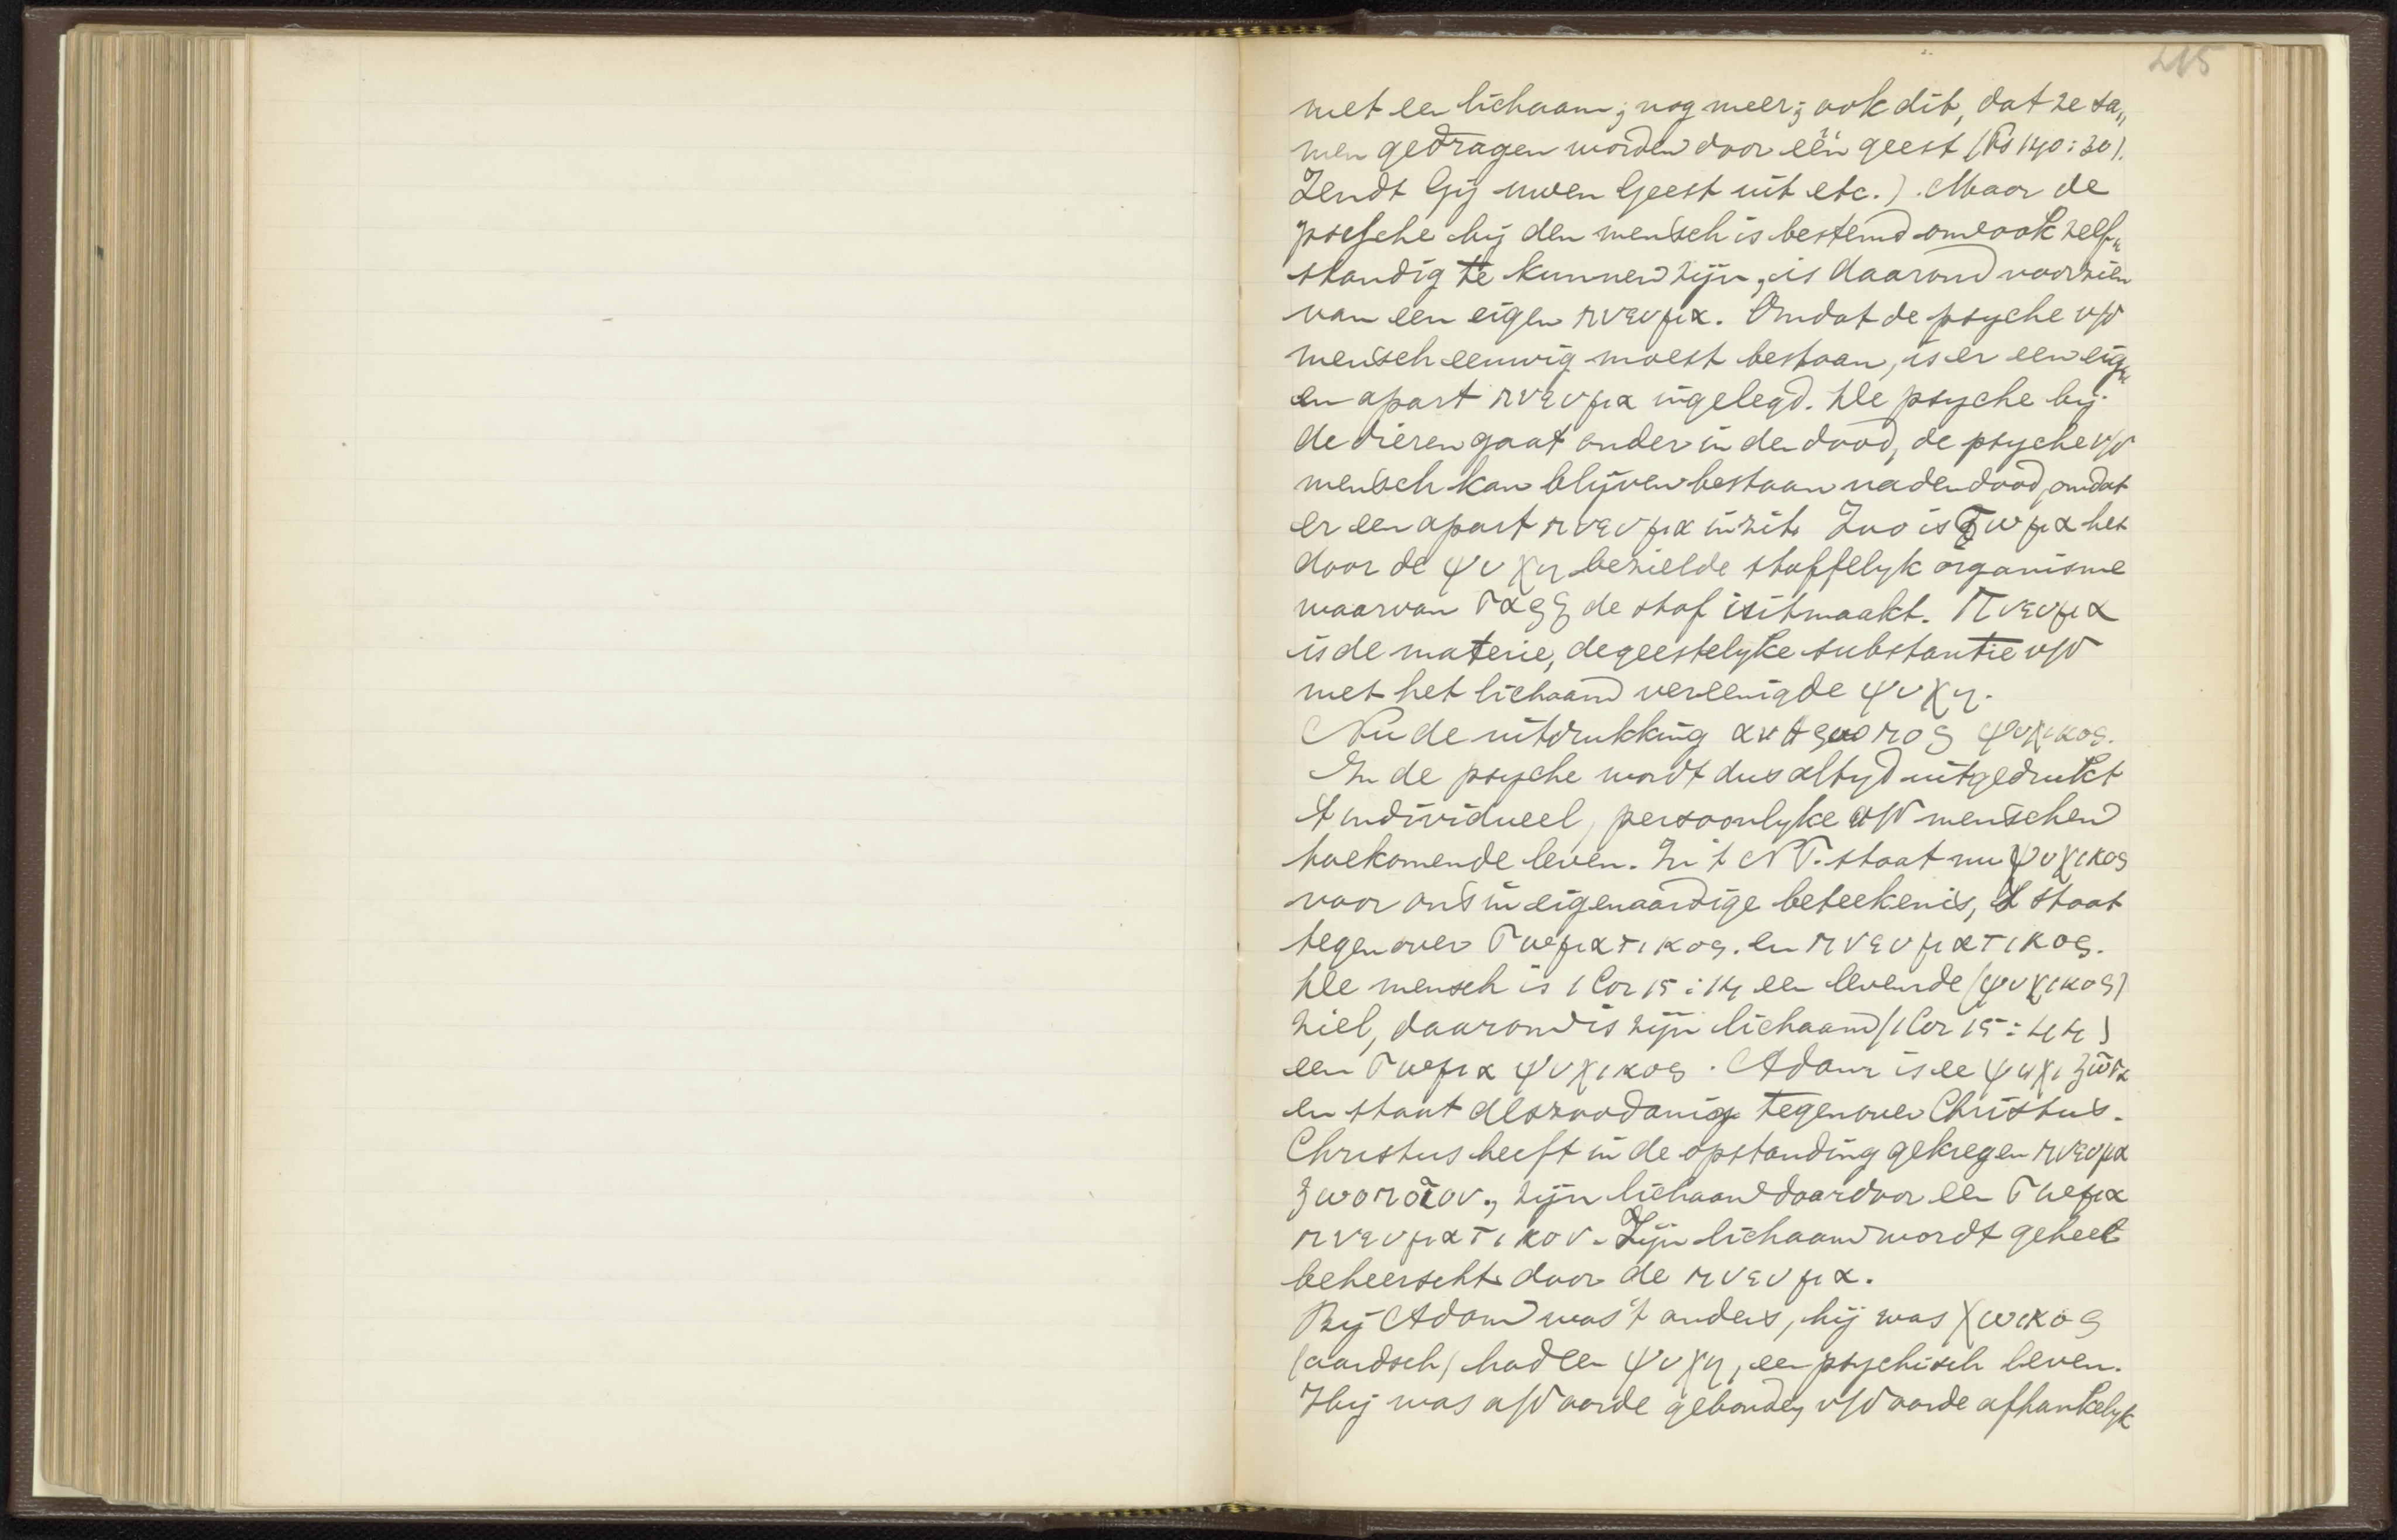 215
met een lichaam; nog meer; ook dit, dat ze sa„
men gedragen worden door één geest (Ps 140:30).
Zendt Gij uwen Geest uit etc.). Maar de
psyche bij den mensch is bestemd om ook zelf„
standig te kunnen zijn, is daarom voorzien
van een eigen πνευμα. Omdat de psyche v/d
mensch eeuwig moest bestaan, is er een eig„
en apart πνευμα ingelegd. De psyche bij
de dieren gaat onder in den dood, de psyche v/d
mensch kan blijven bestaan na den dood, omdat
er een apart πνευμα in zit. Zoo is σωμα het
door de ψυχη bezielde stoffelyk organisme
waarvan σαρξ de stof uitmaakt. Πνευμα
is de materie, de geestelyke substantie v/d
met het lichaam vereenigde ψυχη.
Nu de uitdrukking ανθρωπος ψυχικος.
In de psyche wordt dus altyd uitgedrukt
't individueel, persoonlyke a/d menschen
toekomende leven. In 't N T. staat nu ψυχικος
voor ons in eigenaardige beteekenis, 't staat
tegenover σωματικος. en πνευματικος.
De mensch is 1 Cor 15:14 een levende (ψυχικος)
ziel, daarom is zijn lichaam (1 Cor 15:44)
een σωμα ψυχικος. Adam is ee ψυχι ζῶσα
en staat als zoodanig tegenover Christus.
Christus heeft in de opstanding gekregen πνευμα
ζωοποιον, zijn lichaam daardoor een σωμα
πνευματικον. Zijn lichaam wordt geheel
beheerscht door de πνευμα.
Bij Adam was 't anders, hij was χωικος
(aardsch) had een ψυχη, een psychisch leven.
Hij was a/d aarde gebonden, v/d aarde afhankelyk